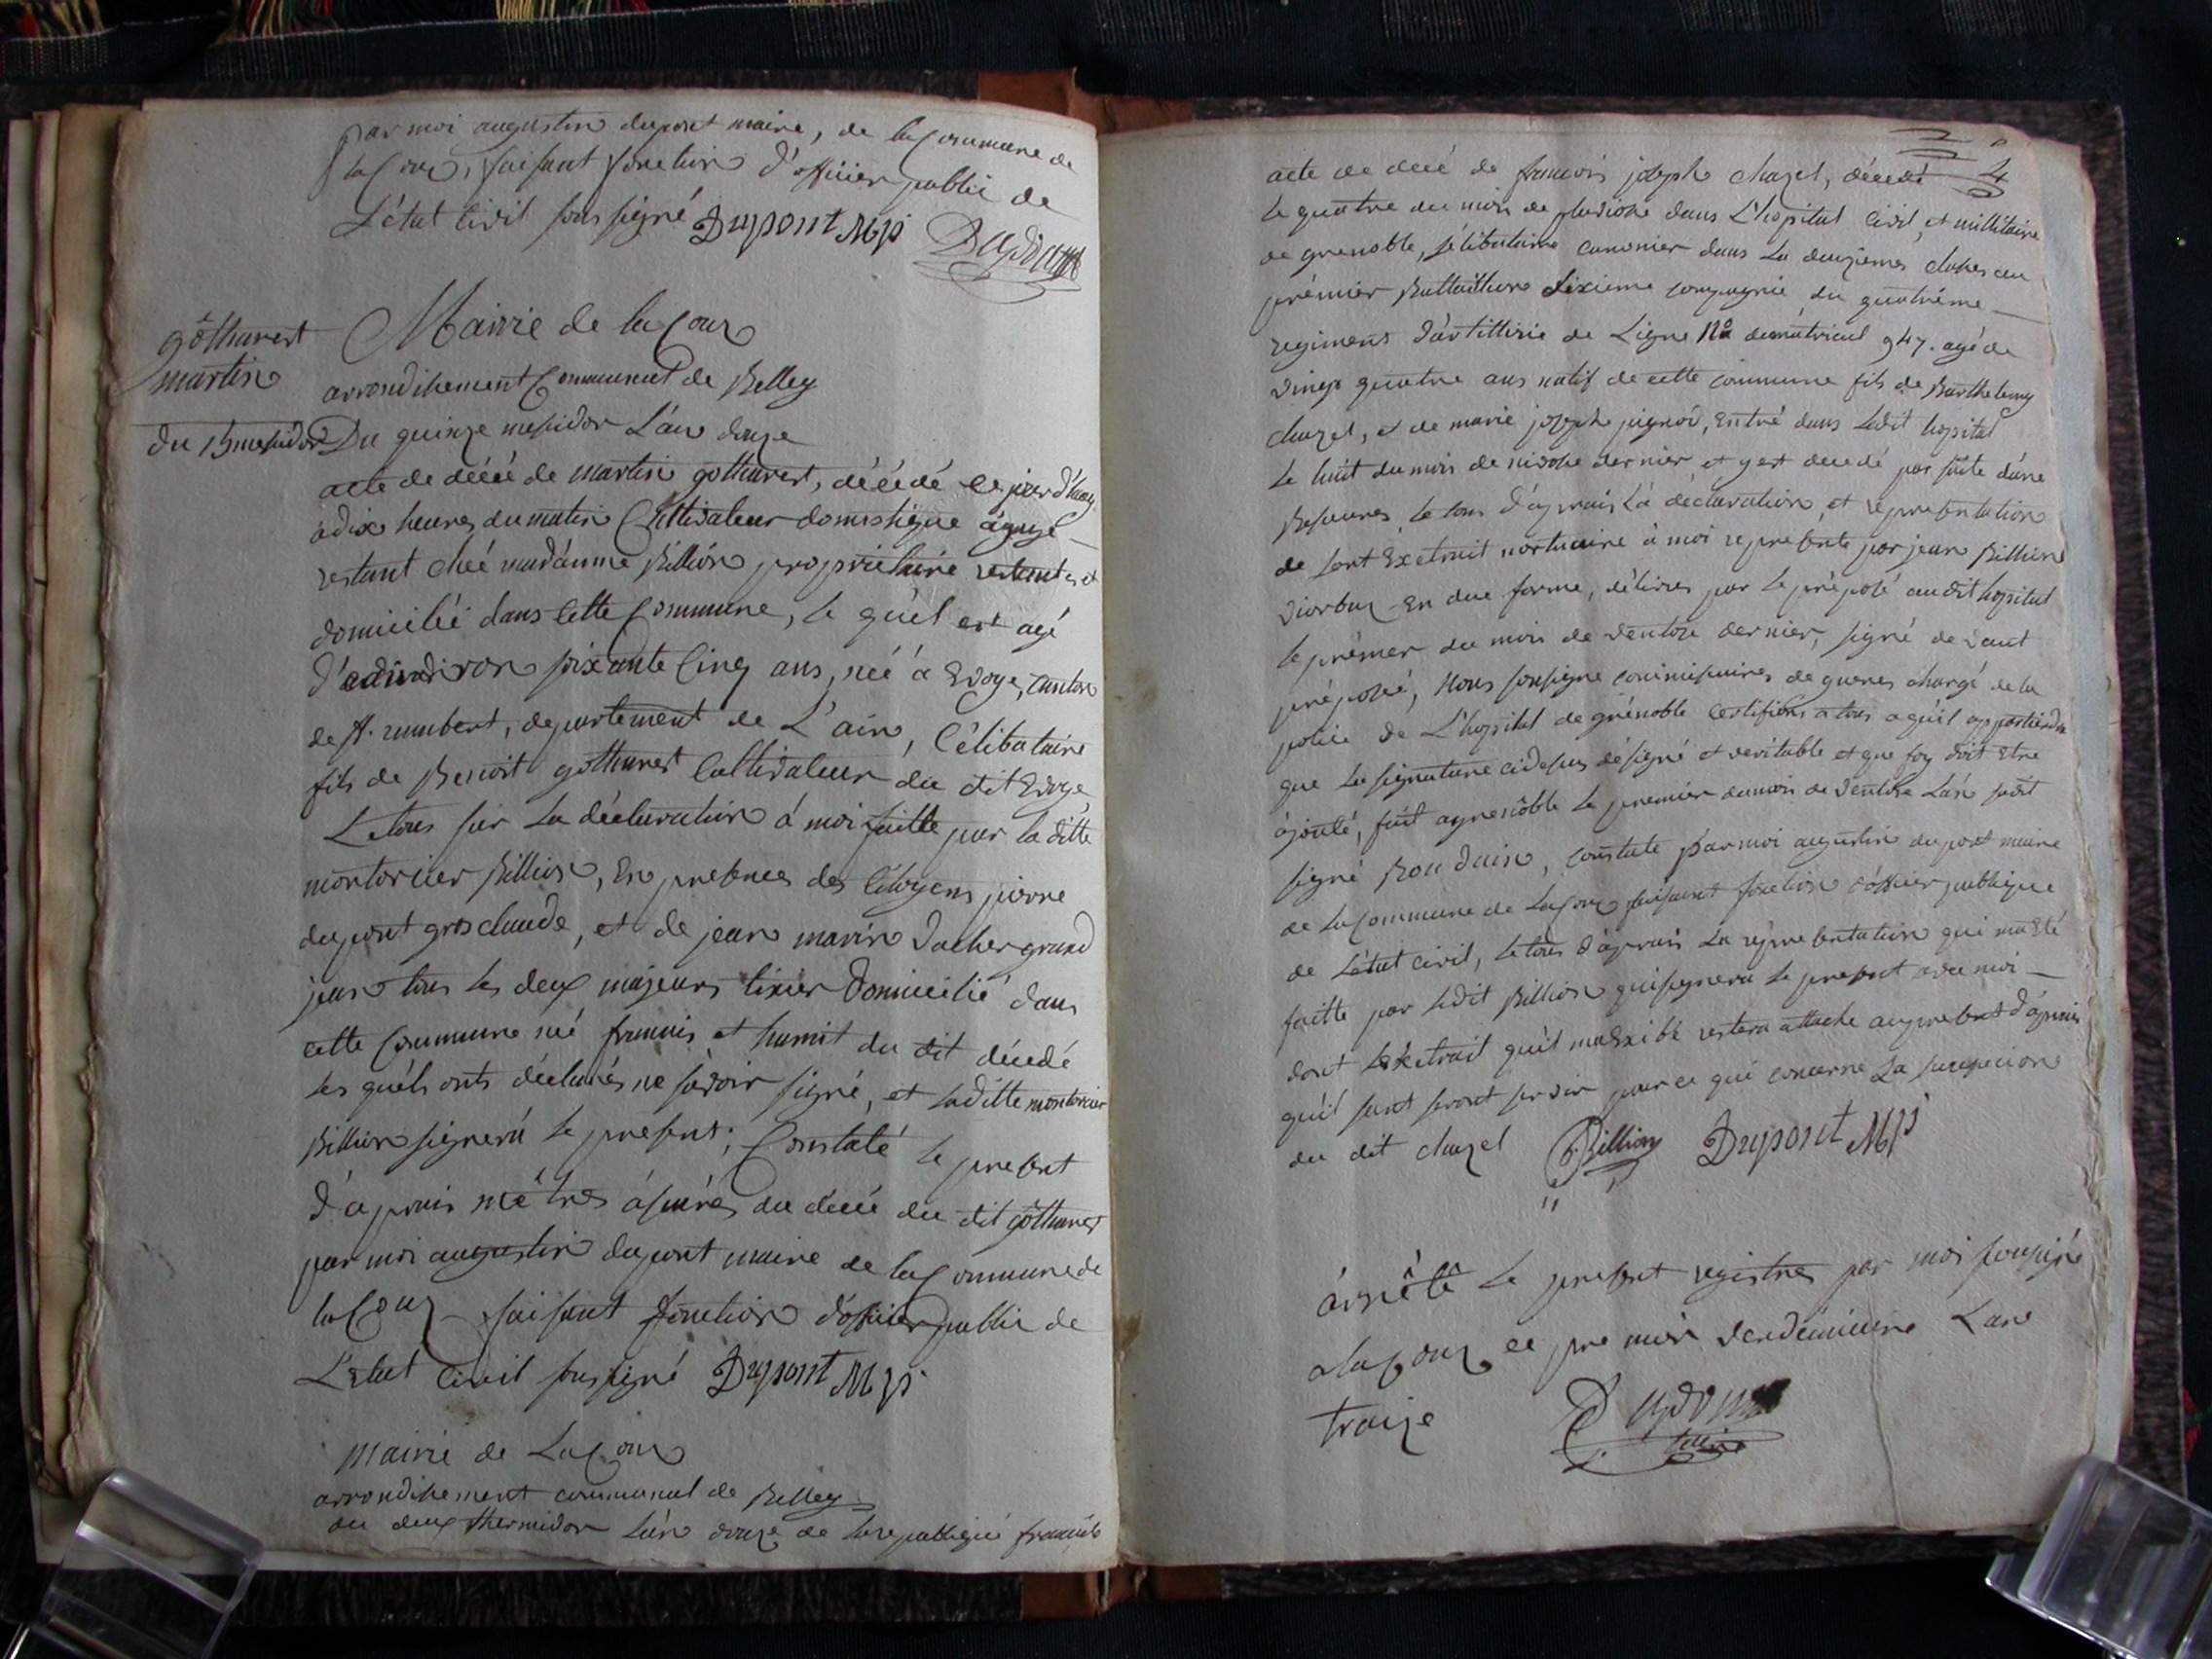 par moi augustin dupont maire, de la Commune de
la Coux, faisant fonction d'officier public de
L'état Civil sous signé Dupont M
Mairie de la Coux
gôthurest
martin
arrondissement Communal de Belley
du 15 messidor
Du quinze messidor L'an douze
acte de décé de martin gothurest, décédé ce jourd'huy
a dix heures du matin Cultivateur domestique à gage
restant cheé madamme Billion propriétaire restante et
domicilié dans Cette Commune, le quel est agé
d' soixante Cinq ans, né à Evoge, canton
de st. rambert, departement de L'ain, Célibataire
fils de Benoit gôthurest Cultivateur du dit Evoge
Letous sur La déclaration à moi faitte par la ditte
montorcier Billion, En presence des Citoyens pierre
dupont gros claude, et de jean marin Vacher grand
jean tous les deux majeurs tixier Domicilié dans
cette Commune né francois et humit du dit décédé
les quéls onts déclarés ne savoir signé, et laditte montorcier
Billion signera le present; Constaté le present
d'aprais mêtres assurés du décé du dit gôthurest
par moi augustin dupont maire de la Commune de
la Coux faisant fonction d'officier public de
L'Etat Civil sous signé Dupont M
Mairie de La Coux
arrondissement communal de Belley
du deux thermidor L'an douze de la republique francaise
4
acte de décé de francois joseph chazel, décédé
le quatre du mois de pluviose dans L'hopital Civil, et millitaire
de grenoble, sélibataire canonier dans La deuxiemes classes du
prémier Battaillion sixieme compagnie du quatriéme
regiment d'artillerie de Ligne N° dematricul 947. agé de
vingt quatre ans natif de cette commune fils de Barthelemy
chazel, et de marie joseph juignod, Entré dans Ledit hopital
Le huit du mois de nivose dernier et y est decedé par suite d'une
Blessures, le tous d'aprais La déclaration, et representation
de sont Exstrait mortuaire à moi represente par jean Billion
viorbuz En due forme, délivrés par le préposé audit hopital
le prémier du mois de ventose dernier, signé de Vaut
préposé, Nous sousigne commissaires de gueres chargé de la
police de L'hopital de grénoble Certifions a tous a qu'il appartiendra
que La signature cidessus désigné et veritable et que foy doit Etre
ajouté, fait agrenôble le premier du mois de ventose L'an sudit
signé Bon Dain, constate par moi augustin dupont maire
de La Commune de La Coux faisant fonction d'officier publique
de L'état civil, letous d'aprais La représentation qui ma Eté
faitte par Ledit Billion qui signera le present avec moi
dont L'éxetrait qu'il ma Exibé restera attaché au present d'aprais
qu'il sant seront servir pour ce qui concerne La succession
du dit chazel Billion Dupont M
árrêtê Le present registres par moi sousigné
a la Coux, ce premier Vendémiaire L'an
traize